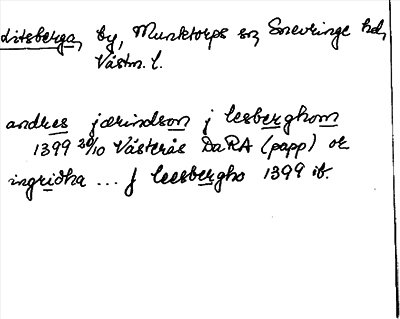 Litsberga, by, Munktorps sn, Snevringe hd,
Västm. l.
andres jærindson j lesberghom
1399 30/10 Västerås DaRA (papp) ok
ingridha ... j leesbergho 1399 ib.